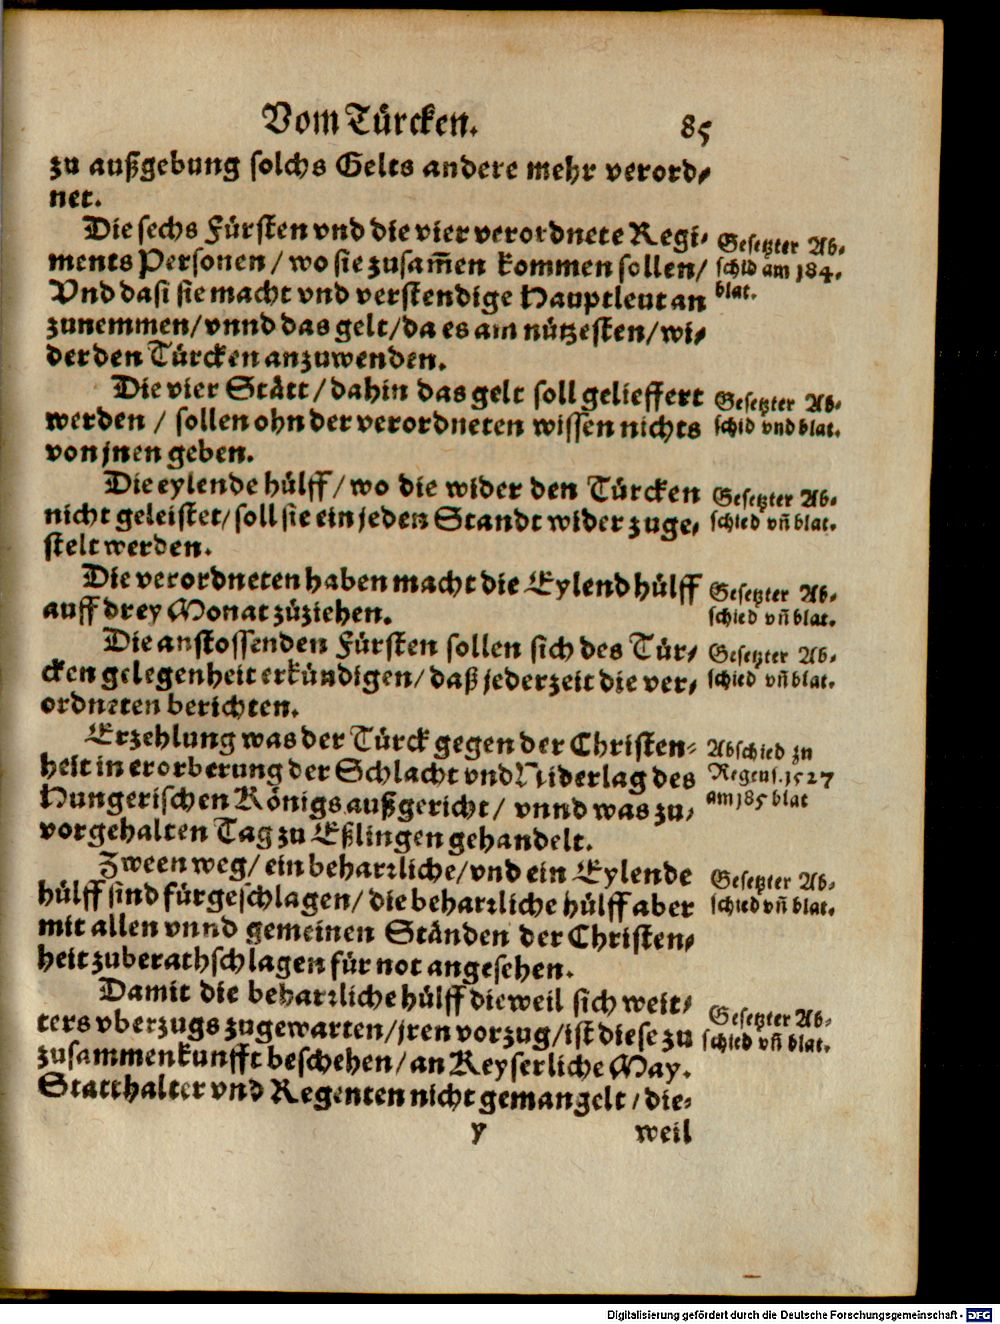 Vom Türcken. 85
zu außgebung solchs Gelts andere mehr verord⸗
net.
Die sechs Fürsten vnd die vier verordnete Regi⸗
ments Personen / wo sie zusam̃en kommen sollen /
Vnd dasi sie macht vnd verstendige Hauptleut an
zunemmen / vnnd das gelt / da es am nützesten / wi⸗
der den Türcken anzuwenden.
Gesetzter Ab⸗
schid am 184.
blat.
Die vier Stätt / dahin das gelt soll gelieffert
werden / sollen ohn der verordneten wissen nichts
von jnen geben.
Gesetzter Ab⸗
schid vnd blat.
Die eylende hülff / wo die wider den Türcken
nicht geleistet / soll sie ein jeden Standt wider zuge⸗
stelt werden.
Gesetzter Ab⸗
schied vñ blat.
Die verordneten haben macht die Eylend hülff
auff drey Monat zůziehen.
Gesetzter Ab⸗
schied vñ blat.
Die anstossenden Fürsten sollen sich des Tür⸗
cken gelegenheit erkündigen / daß jederzeit die ver⸗
ordneten berichten.
Gesetzter Ab⸗
schied vñ blat.
Erzehlung was der Türck gegen der Christen⸗
heit in erorberung der Schlacht vnd Niderlag des
Hungerischen Königs außgericht / vnnd was zu⸗
vorgehalten Tag zu Eßlingen gehandelt.
Abschied zu
Regens. 1527
am 185 blat
Zween weg / ein beharrliche / vnd ein Eylende
hülff sind fürgeschlagen / die beharrliche hülff aber
mit allen vnnd gemeinen Ständen der Christen⸗
heit zuberathschlagen für not angesehen.
Gesetzter Ab⸗
schied vñ blat.
Damit die beharrliche hülff dieweil sich weit⸗
ters vberzugs zugewarten / jren vorzug / ist diese zu
zusammenkunfft beschehen / an Keyserliche May.
Statthalter vnd Regenten nicht gemangelt / die⸗
Gesetzter Ab⸗
schied vñ blat.
y weil
Digitalisierung gefördert durch die Deutsche Forschungsgemeinschaft - DFG